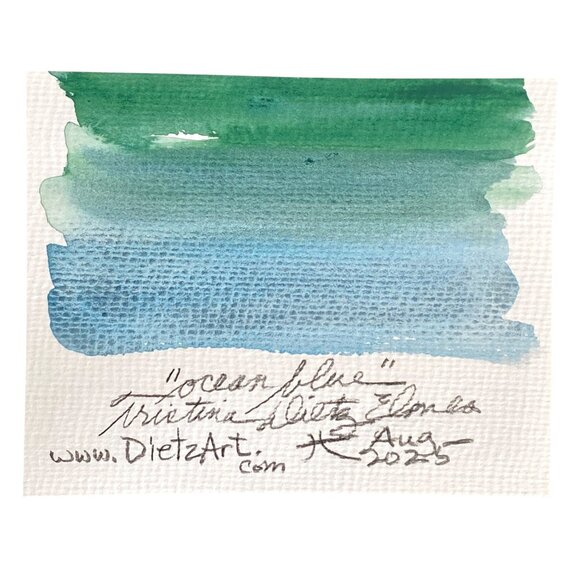 "ocean blue"
Kristina Dietz Elmes
www.DietzArt.
com
Aug
2025